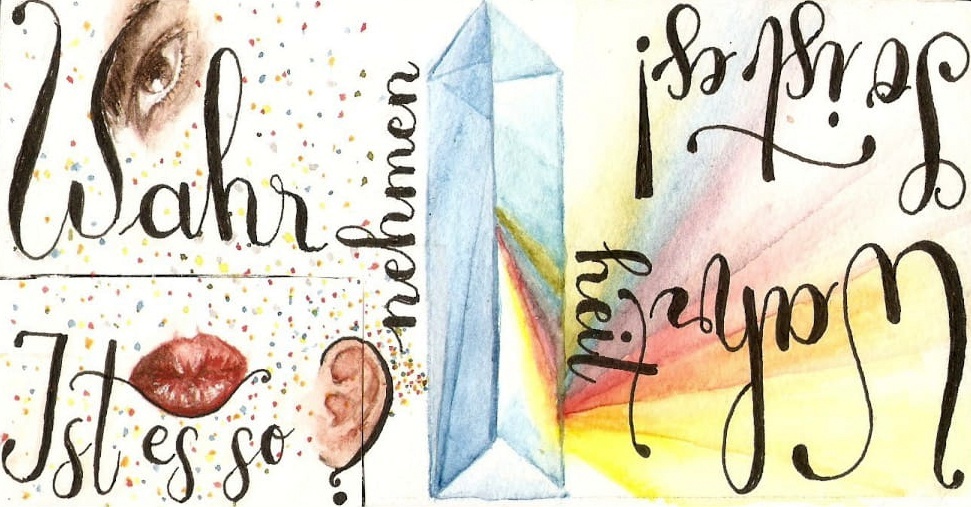 Wahr
nehmen
Ist es so?
Wahr
heit
So ist es!